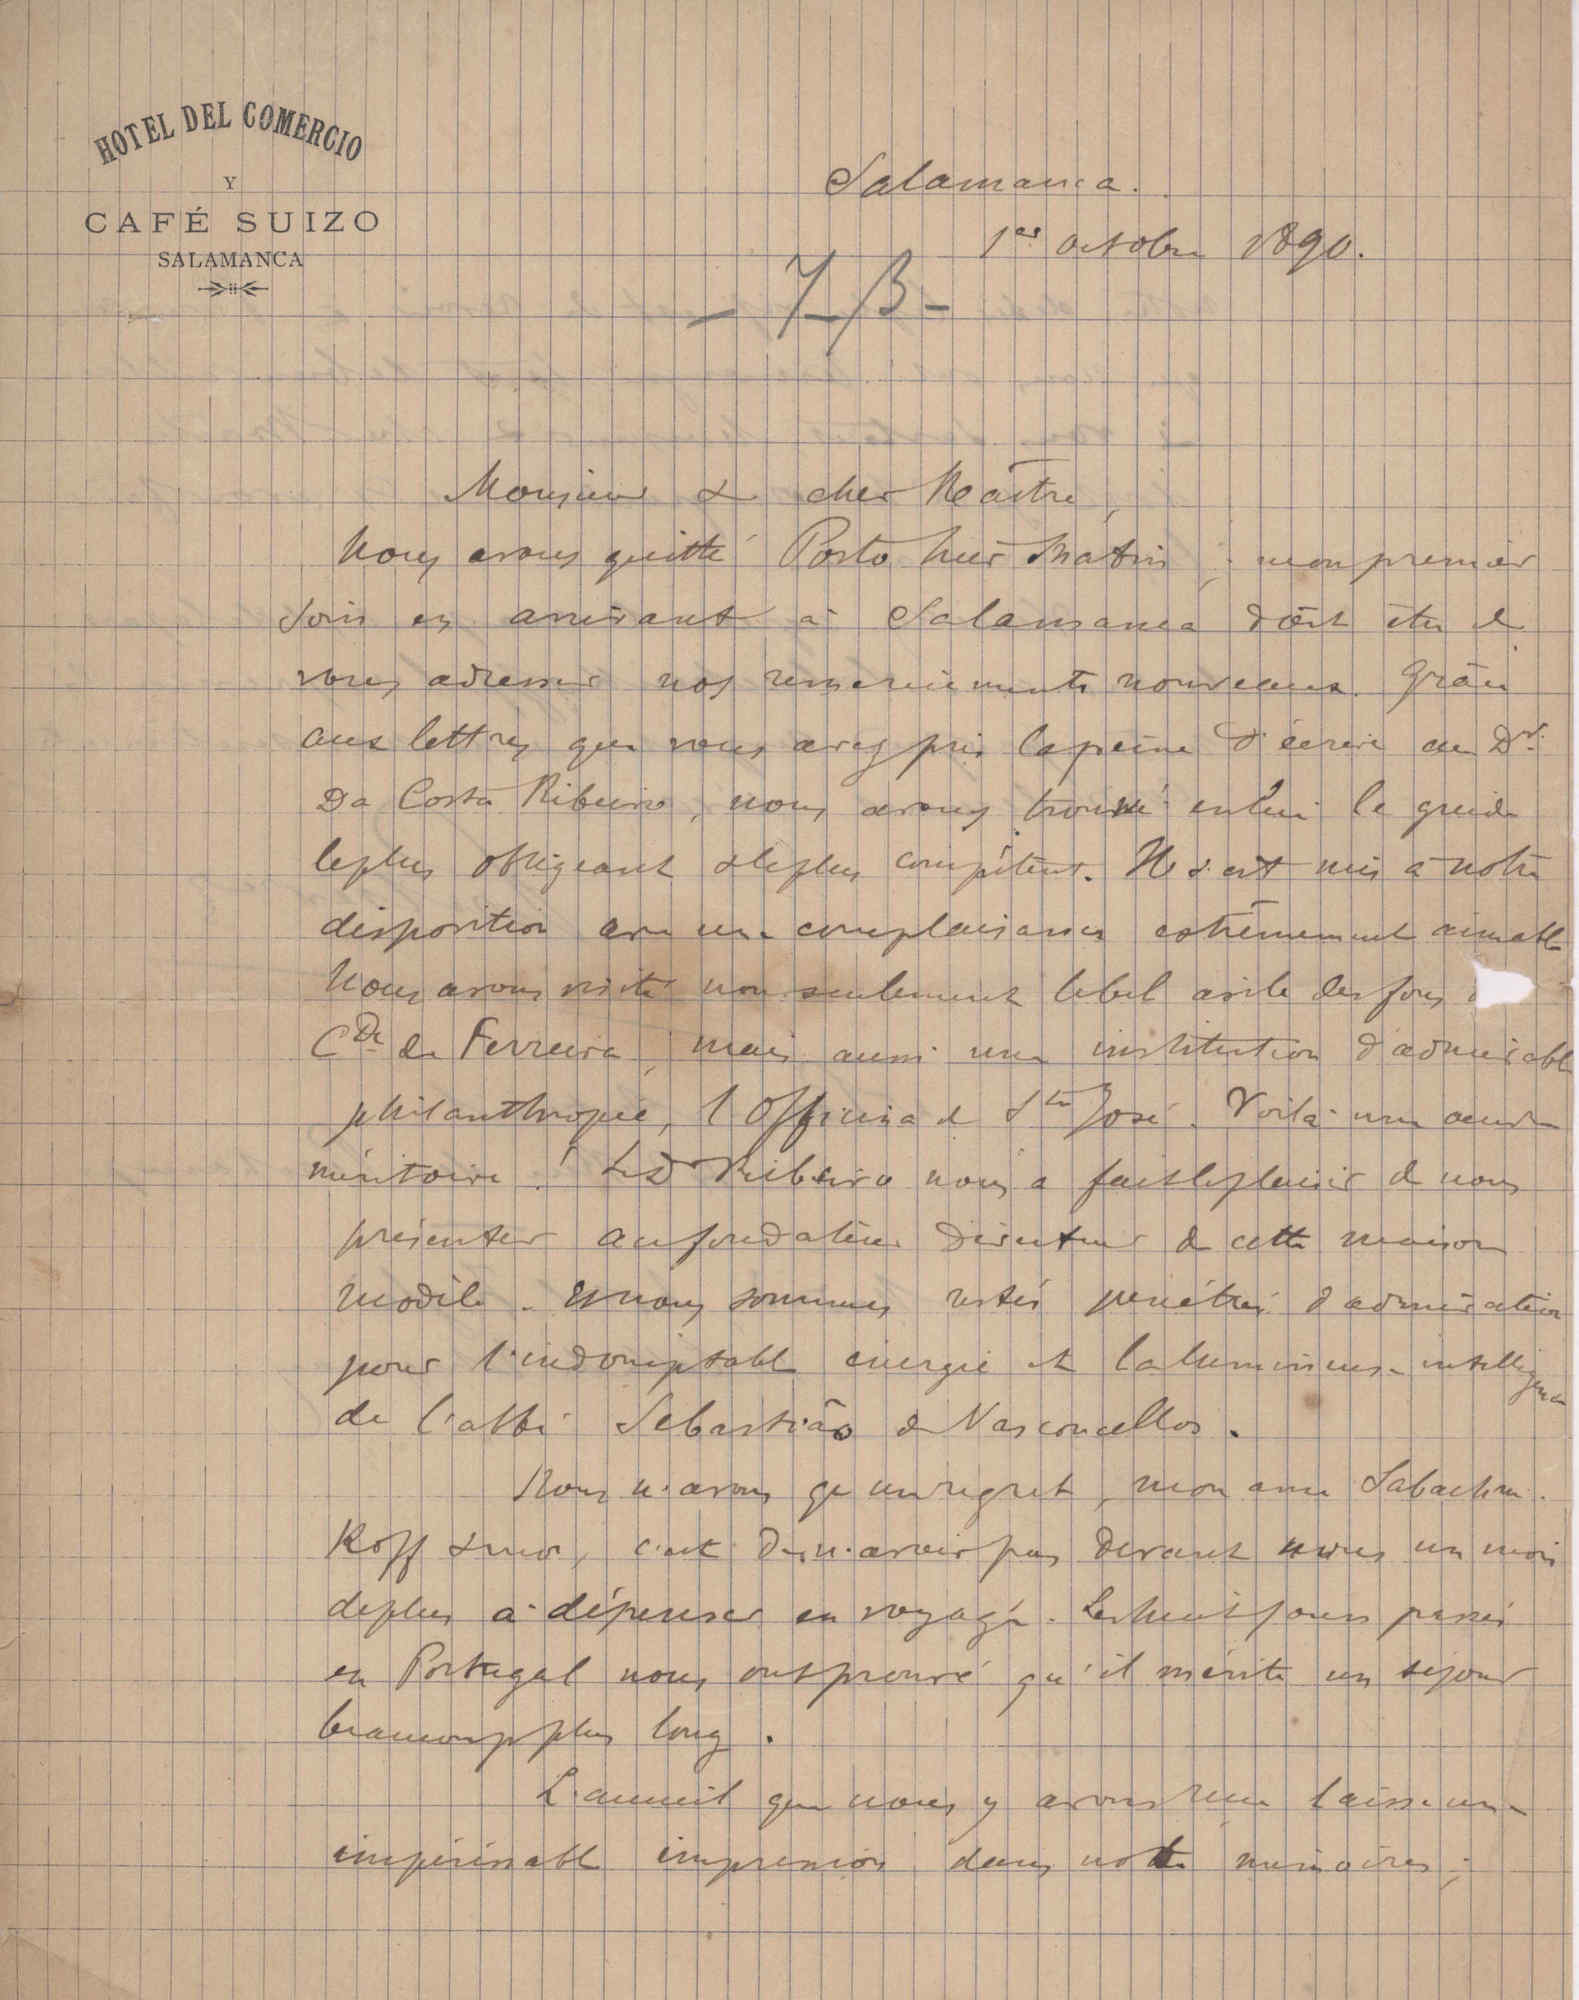 HOTEL DEL COMERCIO
Y
CAFÉ SUIZO
SALAMANCA
Salamanca.
1er octobre 1890.
Monsieur & cher Maître,
Nous avons quitté Porto hier matin ; mon premier
soin en arrivant à Salamanca doit être de
vous adresser nos remerciements nouveaux. Grâce
aux lettres que vous avez pris la peine d'écrire au Dr.
Da Costa Ribeiro, nous avons trouvé en lui le guide
le plus obligeant & le plus compétent. Il s'est mis à notre
disposition avec une complaisance extrêmement aimable
Nous avons visité non seulement le bel asile des fous
Cde de Ferreira, mais aussi une institution d'admirable
philanthropie, l'Officina de Sto José. Voilà une œuvre
méritoire ! Le Dr Ribeiro nous a fait le plaisir de nous
présenter au fondateur directeur de cette maison
modèle. Et nous sommes restés pénétrés d'admiration
pour l'indomptable énergie et la lumineuse intelligence
de l'abbé Sebastião de Vasconcellos.
Nous n'avons qu'un regret, mon ami
& moi, c'est de n'avoir pas devant nous un mois
de plus à dépenser en voyage. Les huit jours passés
en Portugal nous ont prouvé qu'il mérite un séjour
beaucoup plus long.
L'accueil que nous y avons reçu laisse une
impérissable impression dans notre mémoires ;